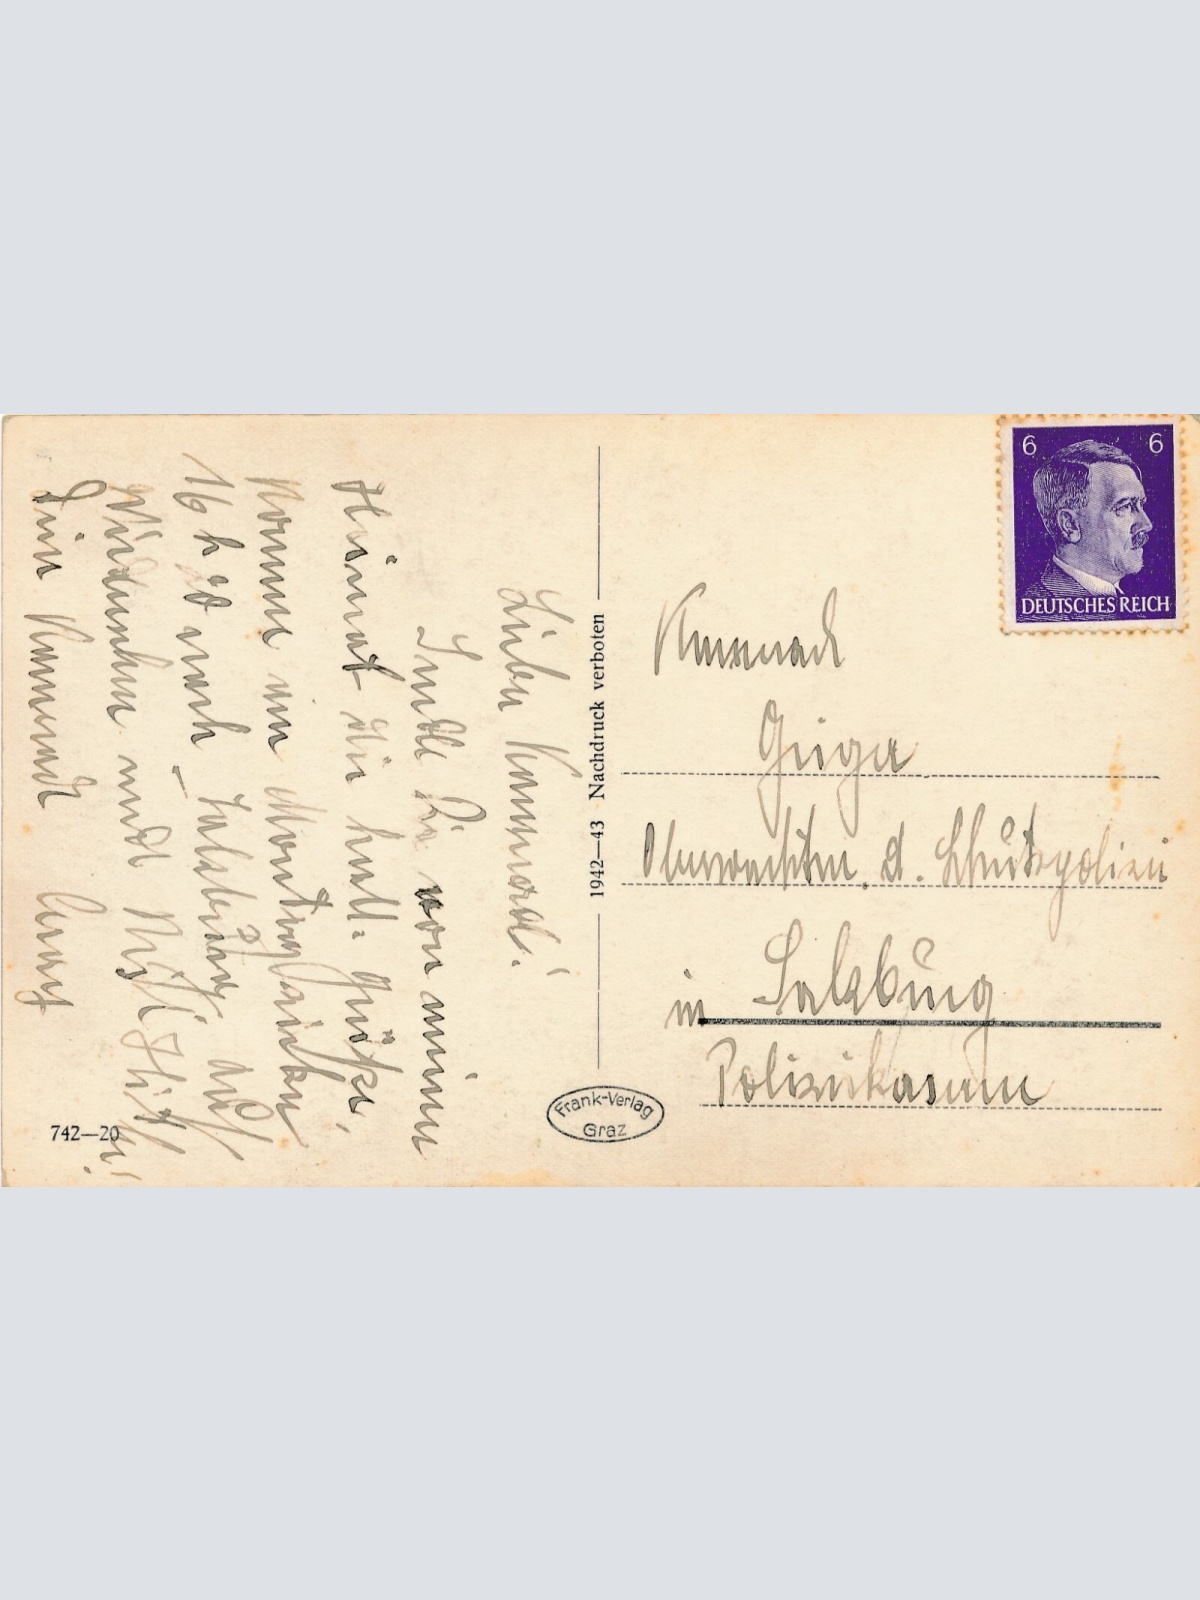 Lieber Kamerad!
Sende Dir von meiner
Heimat die herzl. Grüße,
Komme am Montag
16 h 20 nach Salzburg. auf
Wiedersehen und
Dein Kamerad
742—20
1942—43 Nachdruck verboten
Frank-Verlag
Graz
6 6
DEUTSCHES REICH
Kamerad
Geiger
Oberwachtm. d. Schutzpolizei
in Salzburg
Polizeikaserne